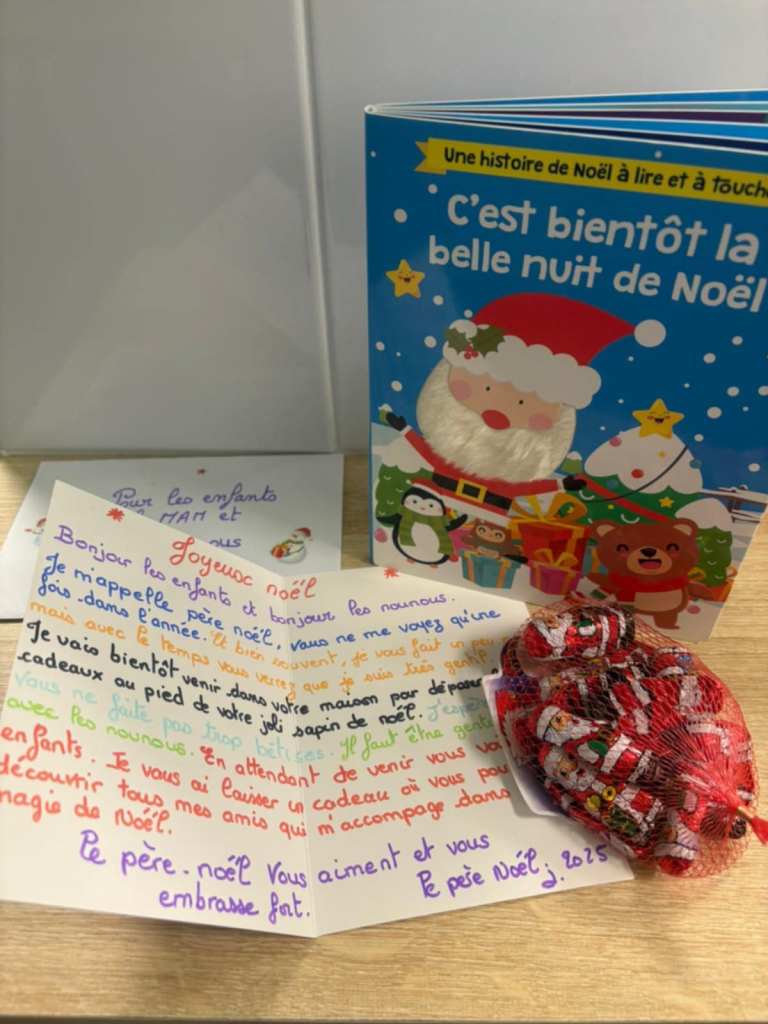 Une histoire de Noël à lire et à touch
C'est bientôt la
belle nuit de Noël
Pour les enfants
MAM et
ous
Joyeuse noël
Bonjour les enfants et bonjour les nounous.
Je m'appelle père noël, vous ne me voyez qu'une
fois dans l'année. Et bien souvent, je vous fait un peu
mais avec le temps vous verrez que je suis très gentil.
Je vais bientôt venir dans votre maison par déposer
cadeaux au pied de votre joli sapin de noël. J'espèr
vous ne faite pas trop bêtises. Il faut être genti
avec les nounous. En attendant de venir vous vo
enfants. Je vous ai laisser un cadeau où vous pou
découvrir tous mes amis qui m'accompage dans
magie de Noël.
Le père-noël vous aiment et vous
embrasse fort.
Le père Noël j. 2025